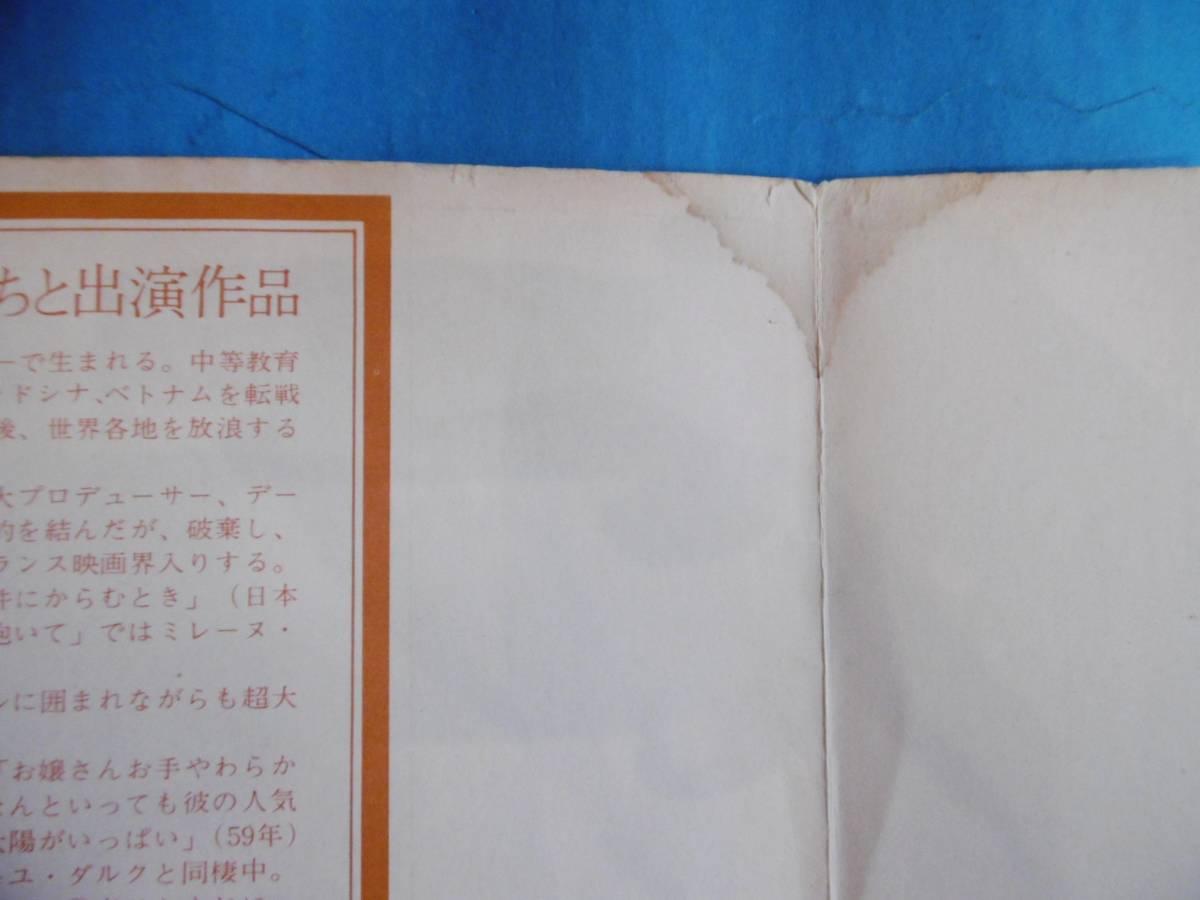 ちと出演作品
ーで生まれる。中等教育
ドシナ、ベトナムを転戦
後、世界各地を放浪する
大プロデューサー、デー
約を結んだが、破棄し、
ランス映画界入りする。
件にからむとき」（日本
抱いて」ではミレーヌ・
ルに囲まれながらも超大
「お嬢さんお手やわらか
なんといっても彼の人気
太陽がいっぱい」(59年)
ユ・ダルクと同棲中。